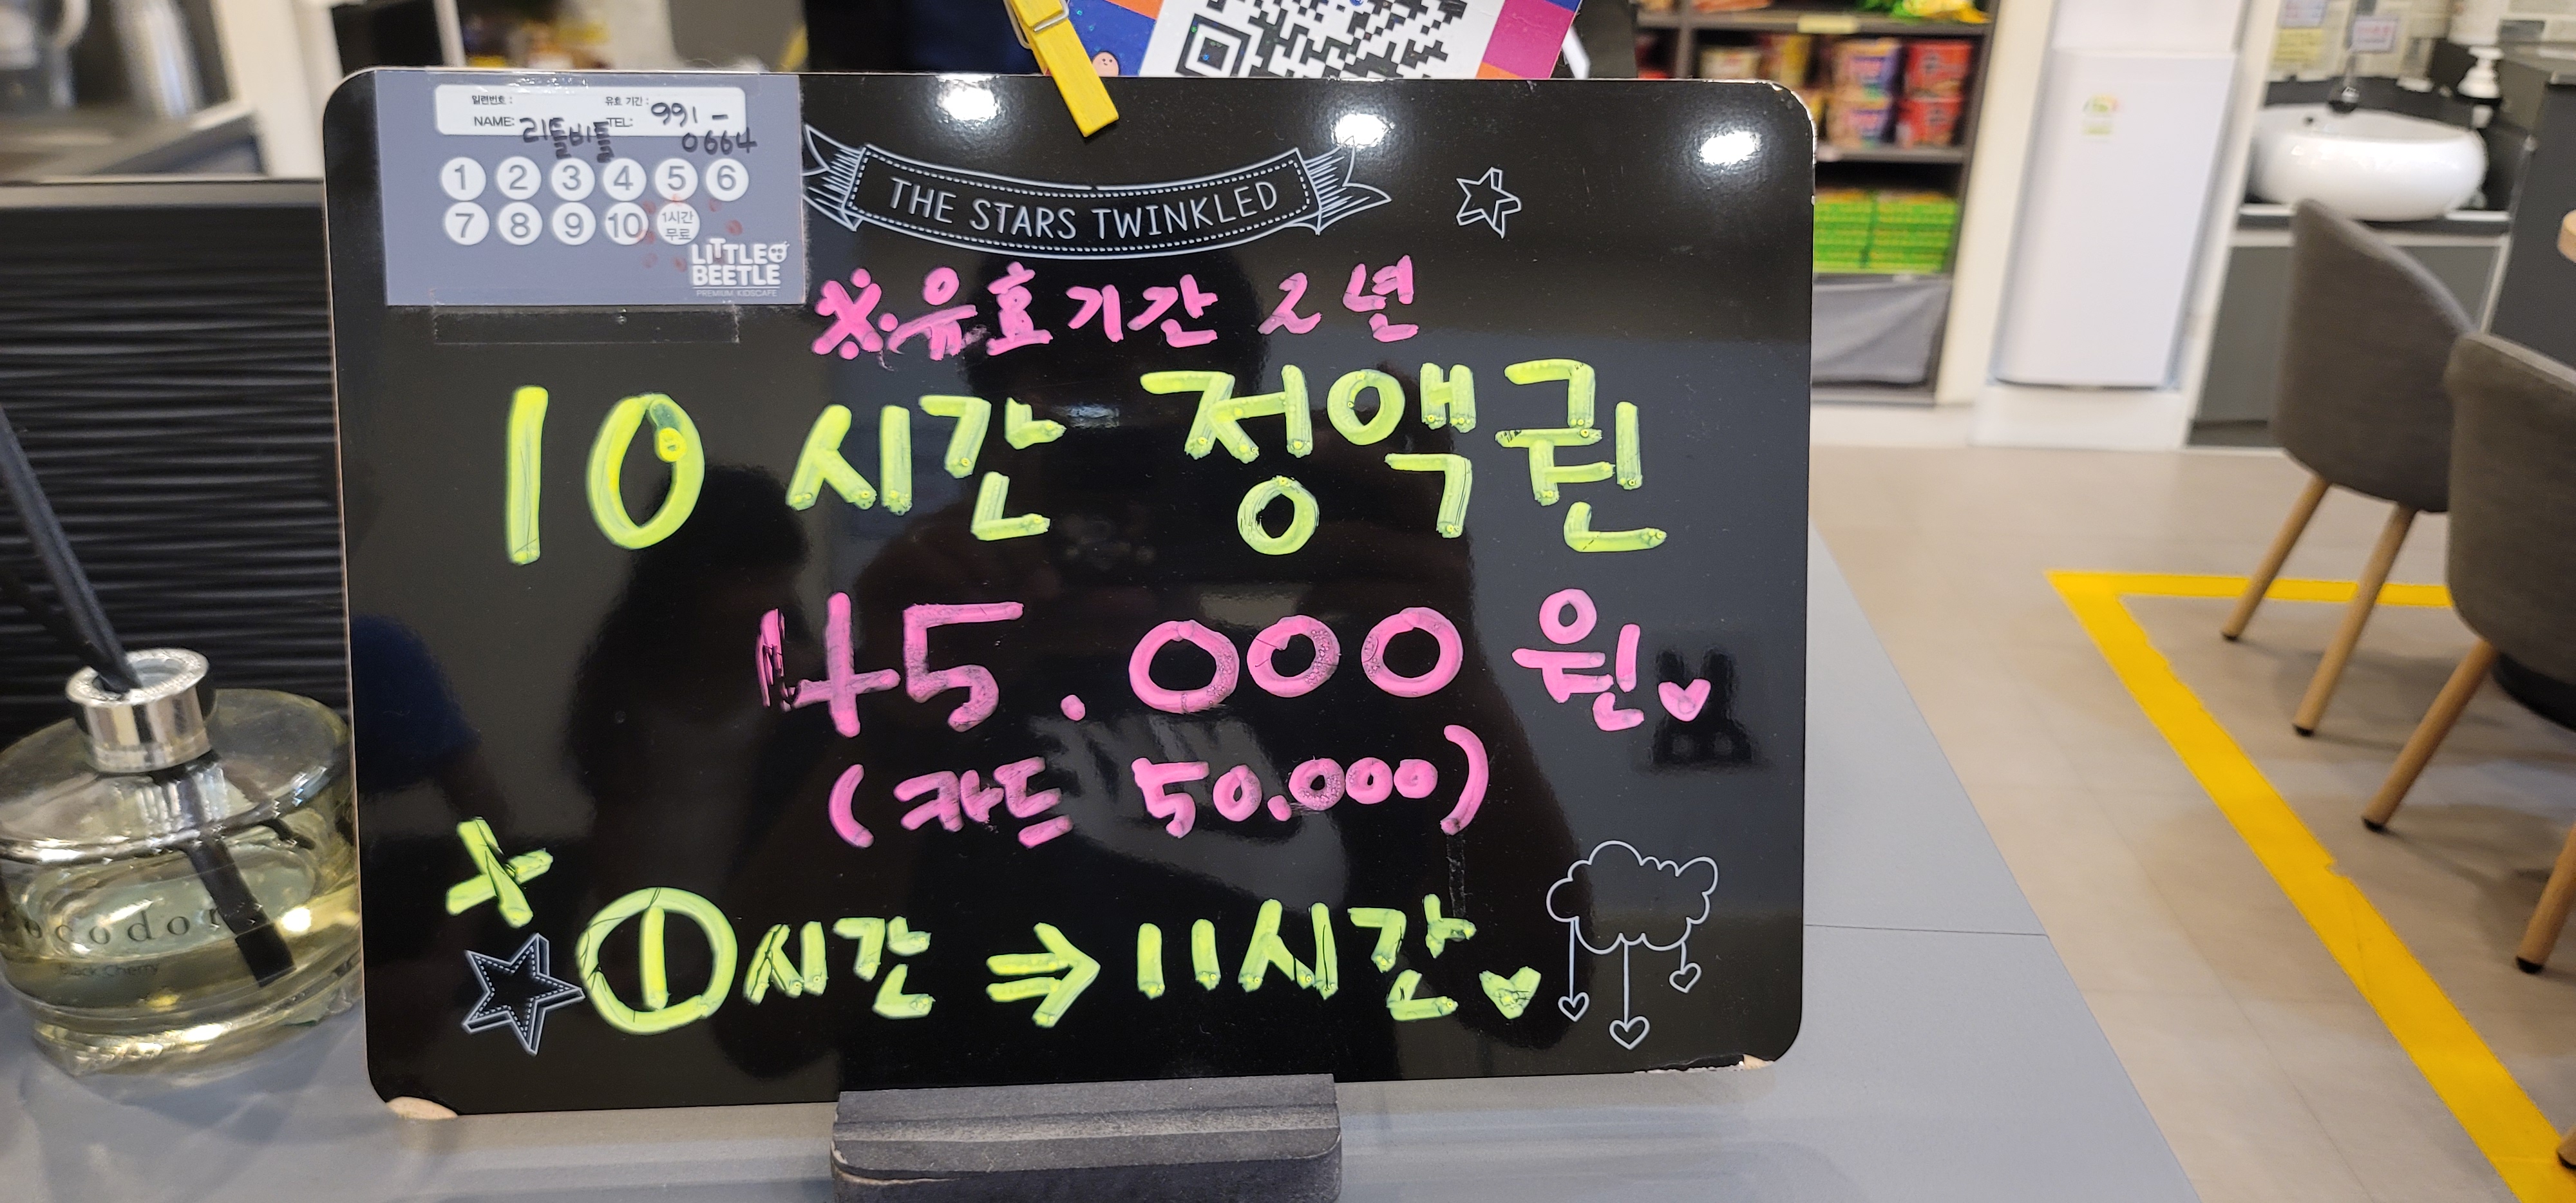 일련번호 : 유효 기간 :
NAME: 리틀비틀 TEL: 991-0664
1 2 3 4 5 6
7 8 9 10 1시간 무료
LITTLE
BEETLE
PREMIUM KIDSCAFE
THE STARS TWINKLED
※유효기간 2년
10시간 정액권
45.000원
(카드 50.000)
+ ①시간 ⇒ 11시간
cocodor
Black Cherry